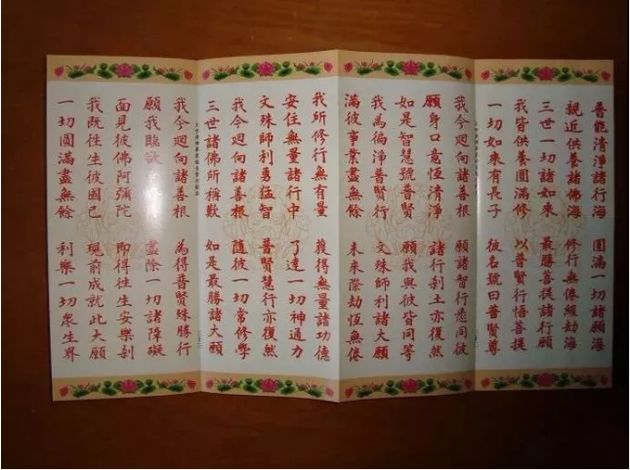 普能清淨諸行海 圓滿一切諸願海
親近供養諸佛海 修行無倦經劫海
三世一切諸如來 最勝菩提諸行願
我皆供養圓滿修 以普賢行悟菩提
一切如來有長子 彼名號曰普賢尊
我今迴向諸善根 願諸智行悉同彼
願身口意恆清淨 諸行剎土亦復然
如是智慧號普賢 願我與彼皆同等
我為徧淨普賢行 文殊師利諸大願
滿彼事業盡無餘 未來際劫恆無倦
我所修行無有量 獲得無量諸功德
安住無量諸行中 了達一切神通力
文殊師利勇猛智 普賢慧行亦復然
我今迴向諸善根 隨彼一切常修學
三世諸佛所稱歎 如是最勝諸大願
我今迴向諸善根 為得普賢殊勝行
願我臨欲命終時 盡除一切諸障礙
面見彼佛阿彌陀 即得往生安樂剎
我既往生彼國已 現前成就此大願
一切圓滿盡無餘 利樂一切眾生界